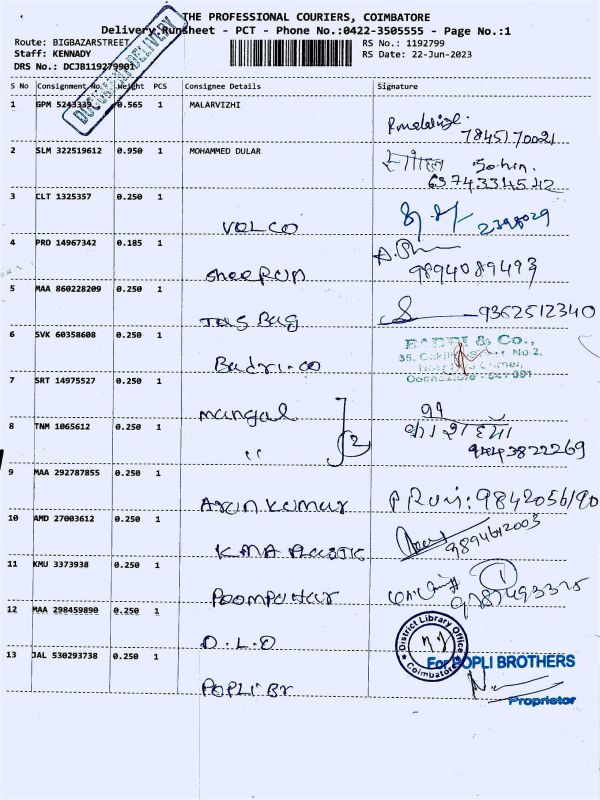 THE PROFESSIONAL COURIERS, COIMBATORE
Delivery Runsheet - PCT - Phone No.:0422-3505555 - Page No.:1
Route: BIGBAZARSTREET RS No.: 1192799
Staff: KENNADY RS Date: 22-Jun-2023
DRS No.: DCJB119279901
DOCUMENT DELIVERY
S No Consignment No. Weight PCS Consignee Details Signature
1 GPM 5243339 0.565 1 MALARVIZHI
7845170021
2 SLM 322519612 0.950 1 MOHAMMED DULAR
3 CLT 1325357 0.250 1 VOLCO
2398029
4 PRO 14967342 0.185 1
9894089493
5 MAA 860228209 0.250 1 Bag
9362512340
6 SVK 60358608 0.250 1 Badri.co
BADRI & Co.,
No.2,
Corner,
Coimbatore - 641 001
7 SRT 14975527 0.250 1 mangal
8 TNM 1065612 0.250 1 "
2
9443822269
9 MAA 292787855 0.250 1 Arun Kumar
10 AMD 27003612 0.250 1 KMA PLASTIC
9894612003
11 KMU 3373938 0.250 1 Poompuhar
12 MAA 298459890 0.250 1 D.L.O
District Library Office
Coimbatore
13 JAL 530293738 0.250 1 POPLI Br
For POPLI BROTHERS
Proprietor